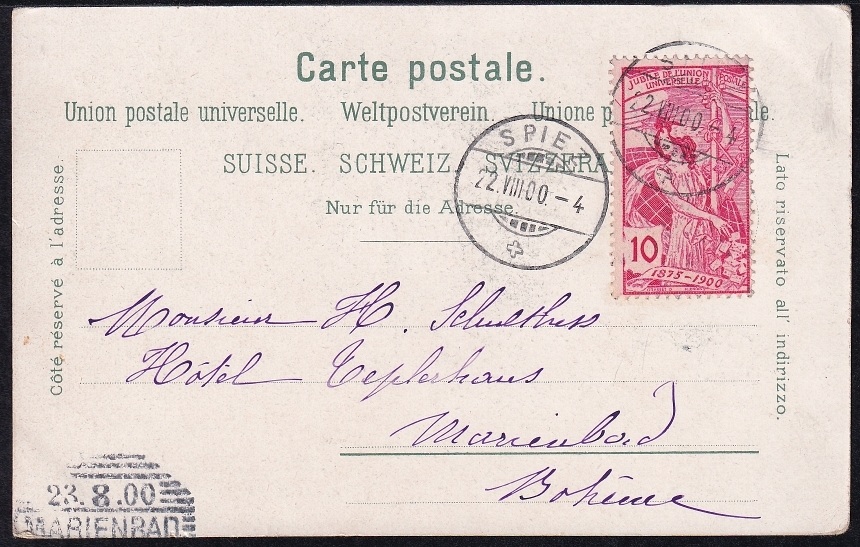 Carte postale.
Union postale universelle. Weltpostverein. Unione
SUISSE. SCHWEIZ. SVIZZERA
Nur für die Adresse.
Côté réservé à l'adresse.
Lato riservato all' indirizzo.
JUBILÉ DE L'UNION POSTALE
UNIVERSELLE
10
1875-1900
22.VIII.00.-4
SPIEZ
22.VIII.00.-4
Monsieur H. Schulthess
Hôtel Teplerhaus
Marienbad
Bohême
23.8.00
MARIENBAD